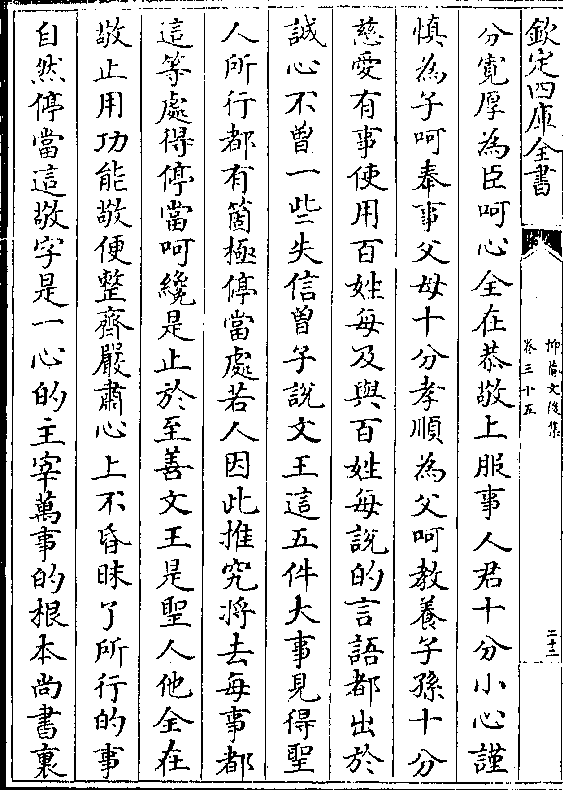 欽定四庫全書
抑菴文後集
卷三十五
二十二
分寛厚為臣呵心全在恭敬上服事人君十分小心謹
慎為子呵奉事父母十分孝順為父呵教養子孫十分
慈愛有事使用百姓每及與百姓每說的言語都出於
誠心不曾一些失信曾子說文王這五件大事見得聖
人所行都有箇極停當處若人因此推究將去每事都
這等處得停當呵纔是止於至善文王是聖人他全在
敬止用功能敬便整齊嚴肅心上不昏昧了所行的事
自然停當這敬字是一心的主宰萬事的根本尚書裏